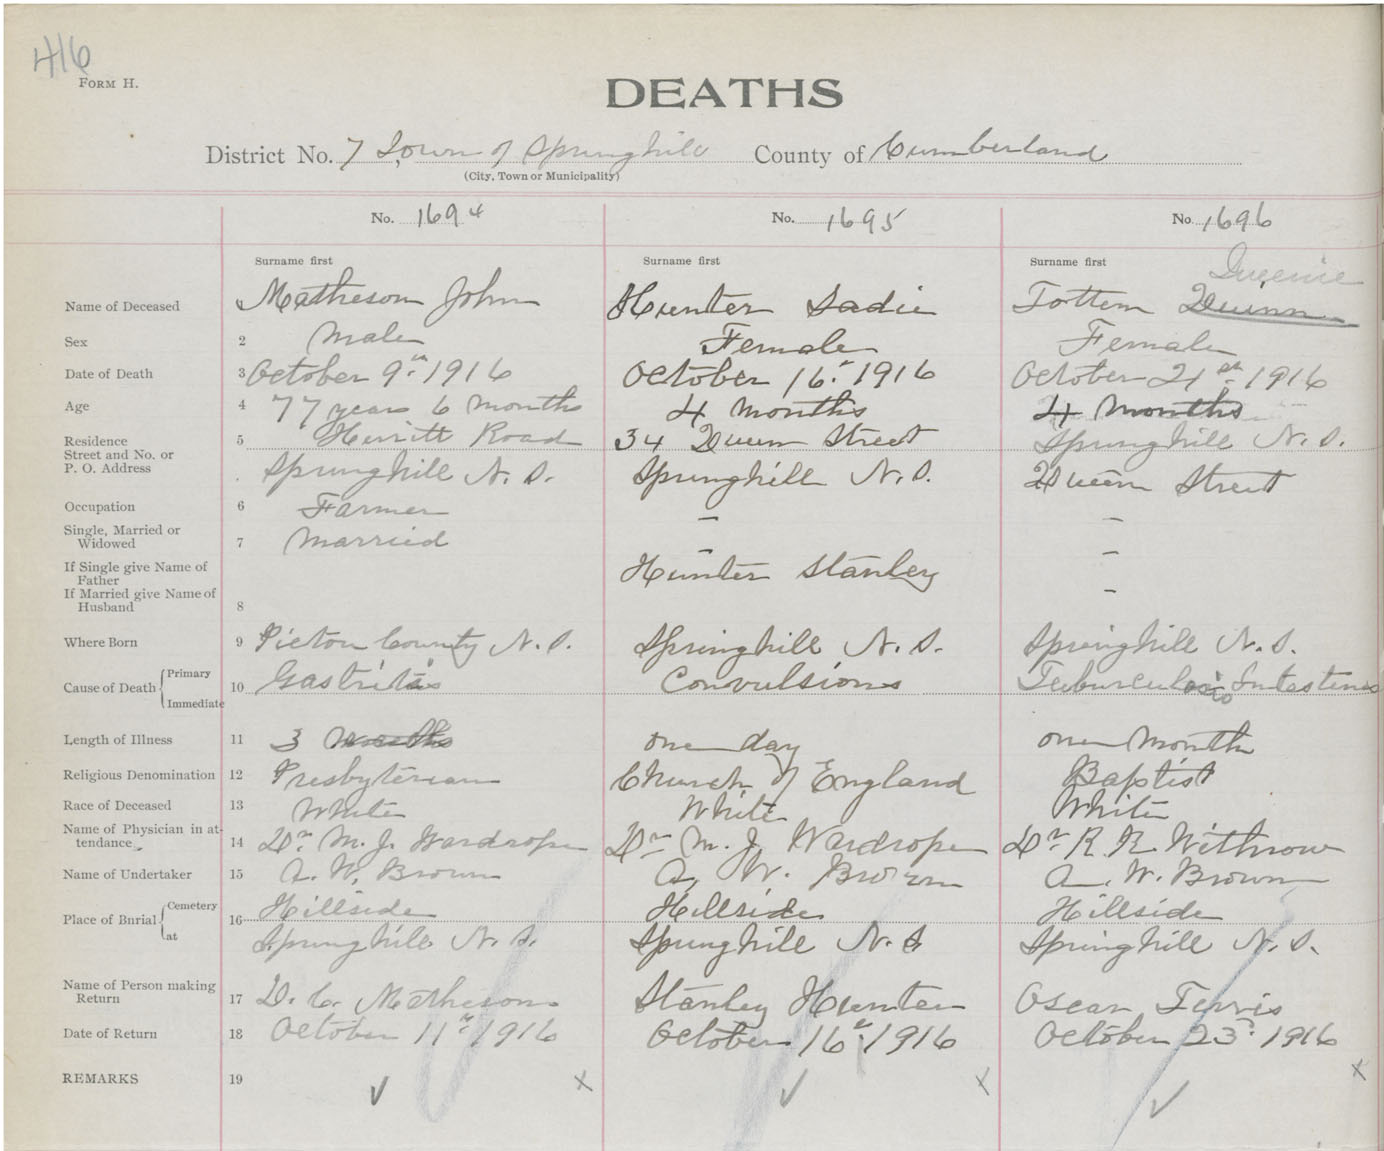 416
FORM H.
DEATHS
District No. 7 Town of Springhill County of Cumberland
(City, Town or Municipality)
No. 1694 No. 1695 No. 1696
Surname first Surname first Surname first
Name of Deceased 1 Matheson John Hunter Sadie Totten
Sex 2 Male Female Female
Date of Death 3 October 9th 1916 October 16th 1916 October 21st 1916
Age 4 77 years 6 months 4 months 4 months
Residence 5 Road 34 Queen Street Springhill N.S.
Street and No. or
P. O. Address Springhill N.S. Springhill N.S. Queen Street
Occupation 6 Farmer – –
Single, Married or
Widowed 7 Married – –
If Single give Name of
Father Hunter Stanley
If Married give Name of
Husband 8 –
Where Born 9 Pictou County N.S. Springhill N.S. Springhill N.S.
Cause of Death Primary 10 Gastritis Convulsions Tuberculosis Intestines
Immediate
Length of Illness 11 3 months one day one month
Religious Denomination 12 Presbyterian Church of England Baptist
Race of Deceased 13 White White White
Name of Physician in at-
tendance 14 Dr M. J. Wardrope Dr M. J. Wardrope Dr R. R. Withrow
Name of Undertaker 15 A. W. Brown A. W. Brown A. W. Brown
Place of Burial Cemetery 16 Hillside Hillside Hillside
at Springhill N.S. Springhill N.S. Springhill N.S.
Name of Person making
Return 17 D. C. Matheson Stanley Hunter Oscar Ferris
Date of Return 18 October 11th 1916 October 16th 1916 October 23rd 1916
REMARKS 19 ✓ x ✓ x ✓ x